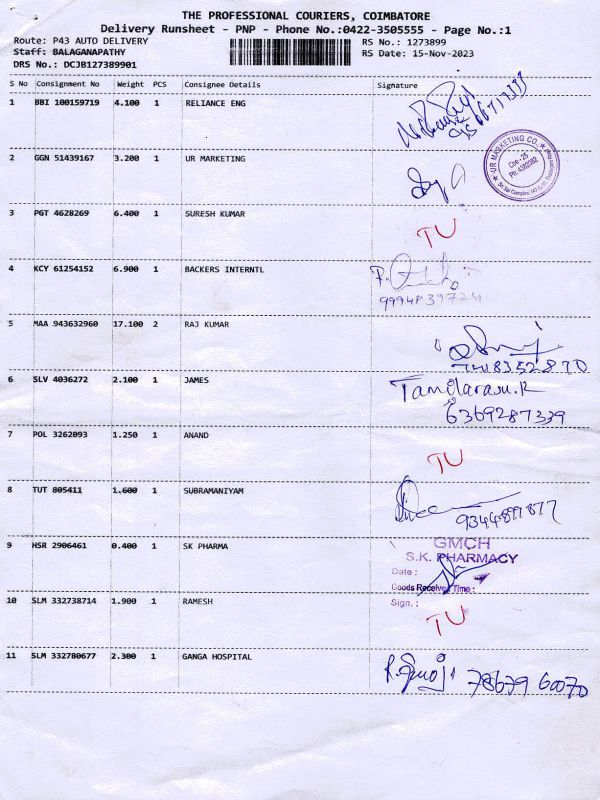 THE PROFESSIONAL COURIERS, COIMBATORE
Delivery Runsheet - PNP - Phone No.:0422-3505555 - Page No.:1
Route: P43 AUTO DELIVERY RS No.: 1273899
Staff: BALAGANAPATHY RS Date: 15-Nov-2023
DRS No.: DCJB127389901
S No Consignment No Weight PCS Consignee Details Signature
1 BBI 100159719 4.100 1 RELIANCE ENG
2 GGN 51439167 3.200 1 UR MARKETING
UR MARKETING CO.
Cbe-25
3 PGT 4628269 6.400 1 SURESH KUMAR TU
4 KCY 61254152 6.900 1 BACKERS INTERNTL
9994839724
5 MAA 943632960 17.100 2 RAJ KUMAR
7448352870
6 SLV 4036272 2.100 1 JAMES Tamilarasu.R
6369287339
7 POL 3262093 1.250 1 ANAND TU
8 TUT 805411 1.600 1 SUBRAMANIYAM
9344897877
9 HSR 2906461 0.400 1 SK PHARMA GMCH
S.K. PHARMACY
Date :
Goods Received Time :
Sign. :
10 SLM 332738714 1.900 1 RAMESH TU
11 SLM 332780677 2.300 1 GANGA HOSPITAL
78679 60070